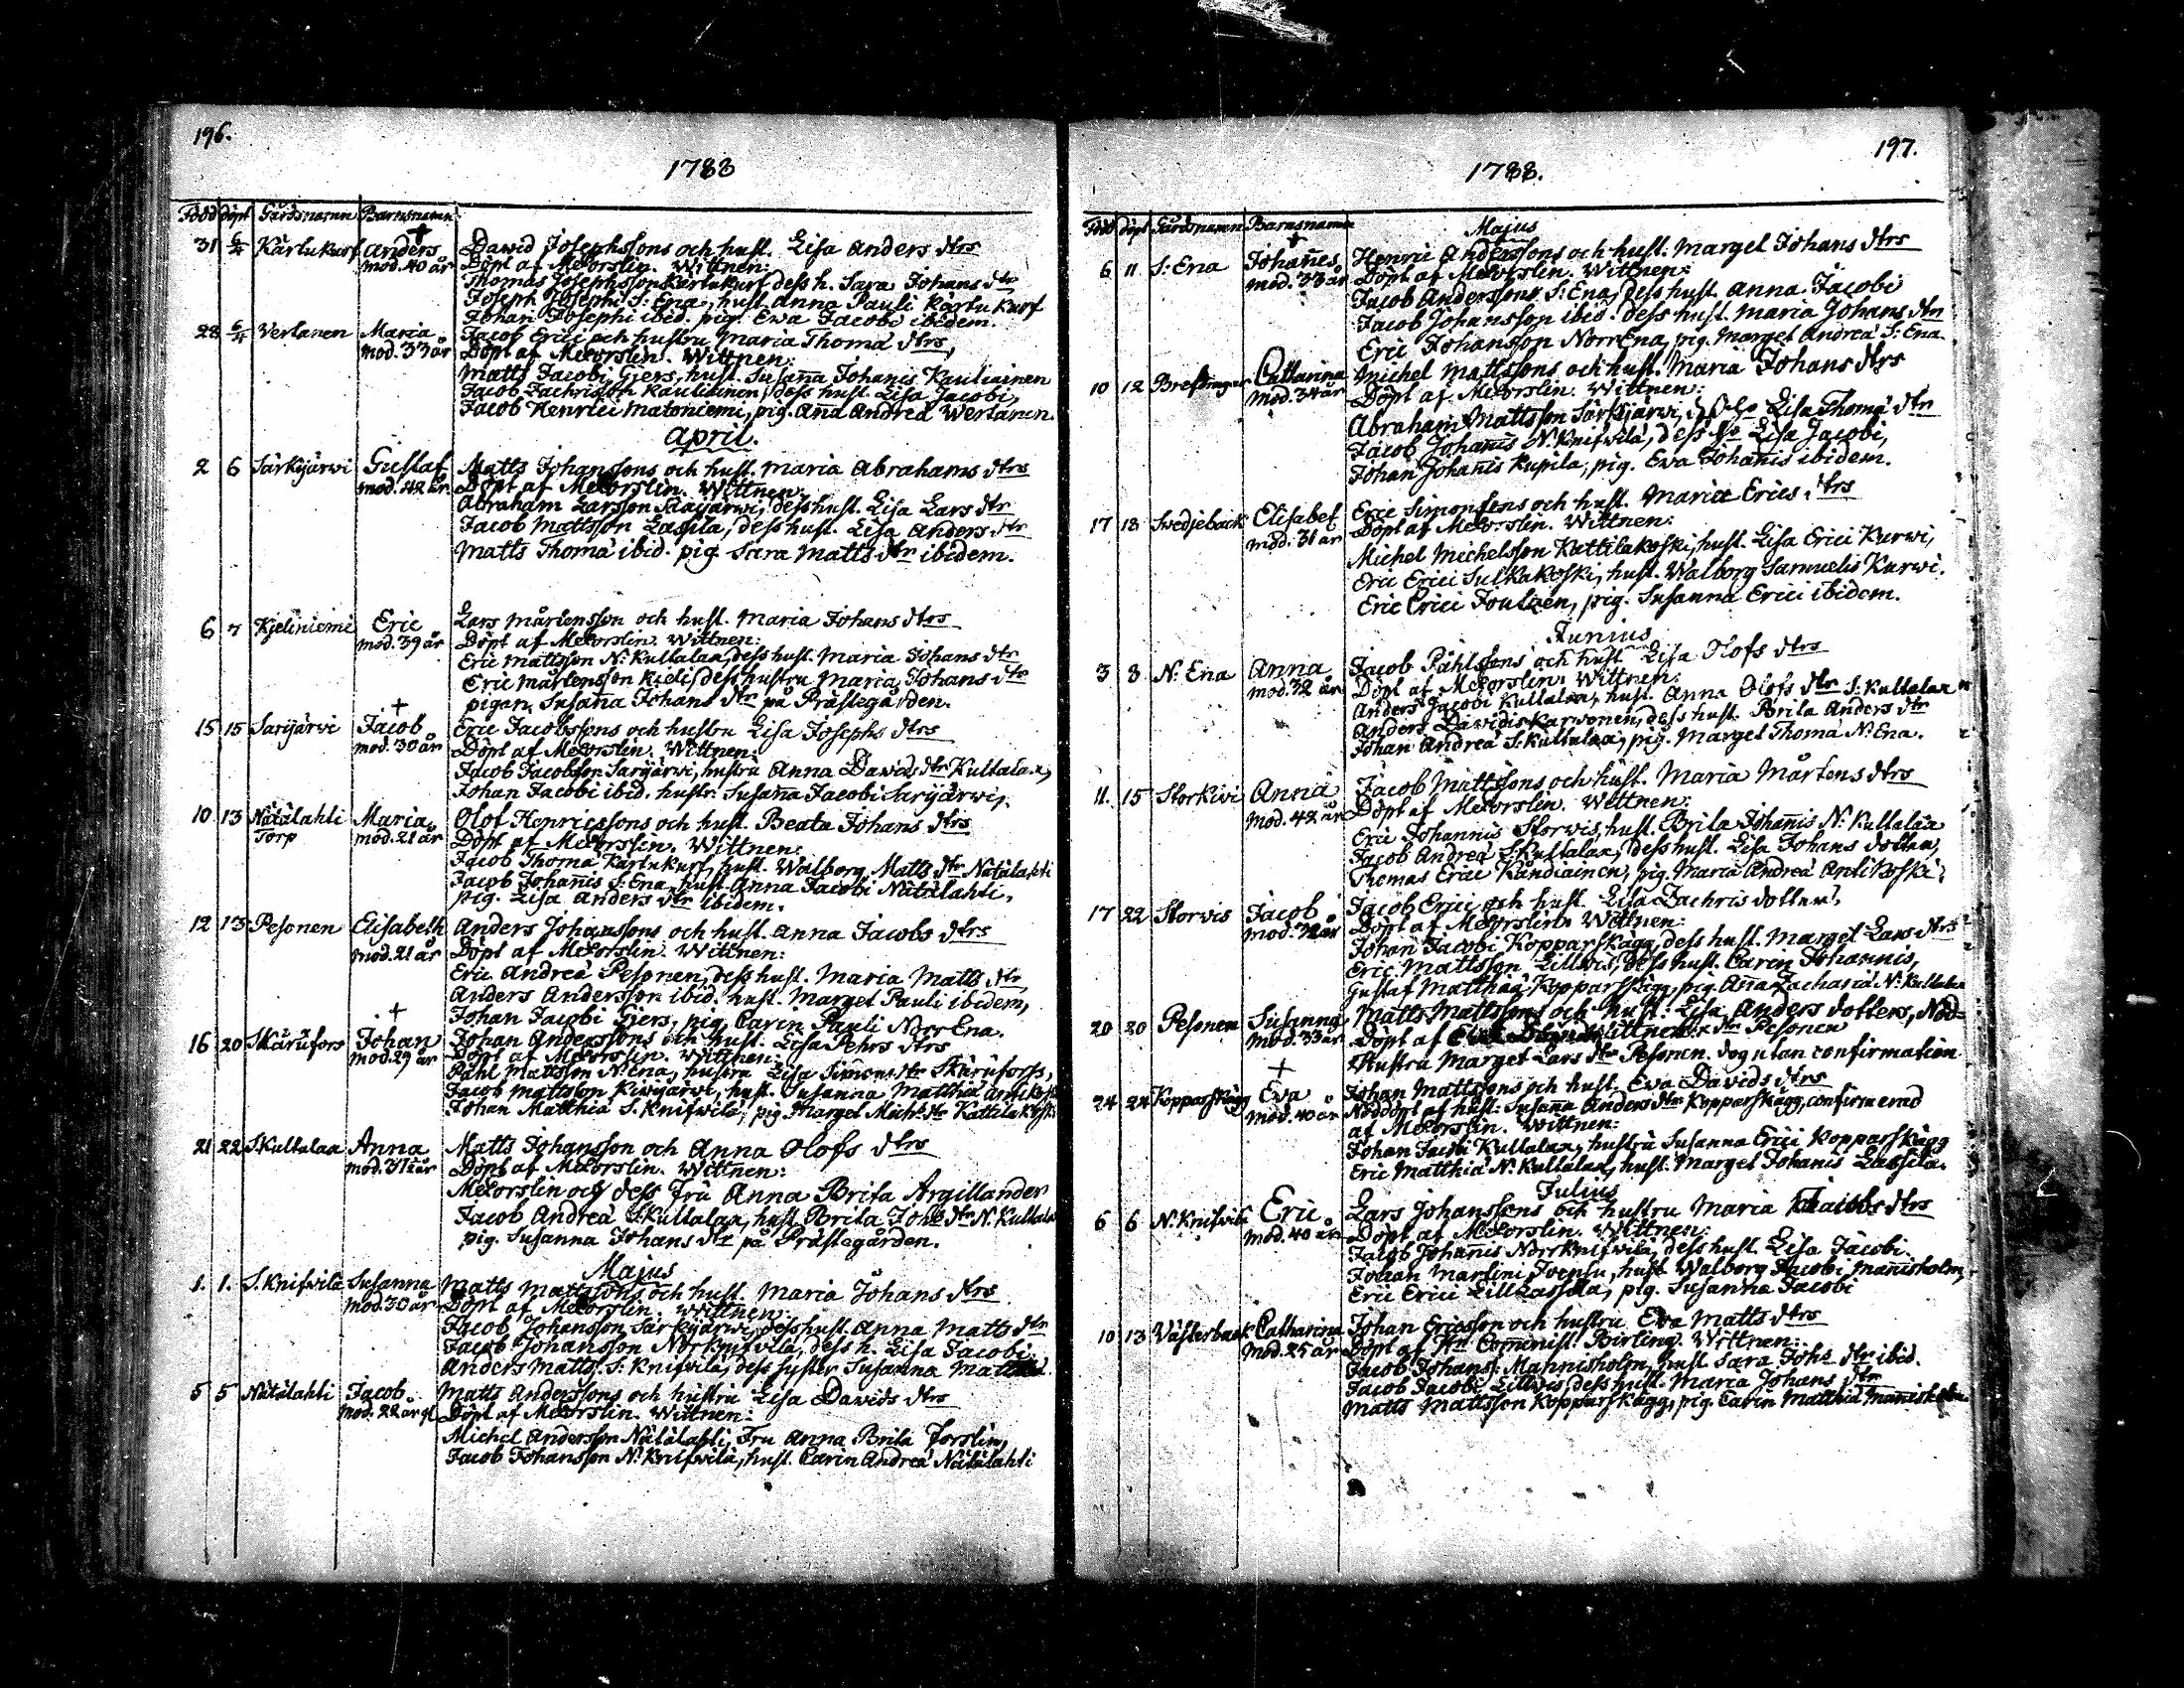 196.
1788
Född döpt Gårdsnamn Barnsnamn
31 6/4 Kärtukurf Anders David Josephssons och hust. Lisa Anders dtrs
mod. 40 år Döpt af MCForslin. Wittnen:
Thomas Josephsson Kärtukurf dess h. Sara Johans dtr
Joseph Josephi S: Ena, hust. Anna Pauli Kärtukurf
Johan Josephi ibid. pig. Ewa Jacobi ibidem.
28 6/4 Wertanen Maria Jacob Erici och hustru Maria Thomæ dtrs,
mod. 33 år Döpt af MCForslin. Wittnen:
Matts Jacobi Gjers, hust. Susaña Johanis Kauliainen
Jacob Zachrisson Kauliainen, dess hust. Lisa Jacobi,
Jacob Henrici Matoniemi, pig. Aña Andreæ Wertanen.
April.
2 6 Särkijärwi Gustaf Matts Johanssons och hust. Maria Abrahams dtrs
mod. 42 år Döpt af MCForslin. Wittnen:
Abraham Larsson Saarijärwi, dess hust. Lisa Lars dtr
Jacob Mattsson Lassila, dess hust. Lisa Anders dtr
Matts Thomæ ibid. pig. Sara Matts dtr ibidem.
6 7 Kjeliniemi Eric Lars Mårtensson och hust. Maria Johans dtrs
mod. 39 år Döpt af MCForslin. Wittnen:
Eric Mattsson N: Kultalax, dess hust. Maria Johans dtr
Eric Mårtensson Kjeli, dess hustru Maria Johans dtr
pigan Susaña Johans dtr på Prästegården.
15 15 Sarijärwi Jacob Eric Jacobssons och hustru Lisa Josephs dtrs
mod. 30 år Döpt af MCForslin. Wittnen:
Jacob Jacobsson Sarijärwi, hustru Anna Davids dtr Kultalax,
Johan Jacobi ibid. hustr. Susaña Jacobi Sarijärwi,
10 13 Nätälahti Maria Olof Henricssons och hust. Beata Johans dtrs
Torp mod. 21 år Döpt af MCForslin. Wittnen:
Jacob Thomæ Kärtukurf, hust. Walborg Matts dtr Nätälahti
Jacob Johañis S: Ena, hust. Anna Jacobi Nätälahti,
pig. Lisa Anders dtr ibidem.
12 13 Pesonen Elisabeth Anders Johanssons och hust. Anna Jacobs dtrs
mod. 21 år Döpt af MCForslin. Wittnen:
Eric Andreæ Pesonen, dess hust. Maria Matts dtr
Anders Andersson ibid. hust. Marget Pauli ibidem,
Johan Jacobi Gjers, pig. Carin Pauli Norr Ena.
16 20 Skärufors Johan Johan Anderssons och hust. Lisa Pehrs dtrs
mod. 29 år Döpt af MCForslin. Wittnen:
Påhl Mattsson N: Ena, hustru Lisa Simons dtr Skäruforss,
Jacob Mattsson Kiwijärwi, hust. Susanna Matthiæ
Johan Matthiæ S. Knifwilä, pig. Marget Mich: dtr
21 22 S. Kultalax Anna Matts Johansson och Anna Olofs dtrs
mod. 31 år Döpt af MCForslin. Wittnen:
MCForslin och dess Fru Anna Brita Argillander
Jacob Andreæ S. Kultalax, hust. Brita Joh: dtr N: Kultala
pig. Susanna Johans dtr på Prästegården.
Majus
1. 1. S. Knifwilä Susanna Matts Mattssons och hust. Maria Johans dtrs
mod. 30 år Döpt af MCForslin. Wittnen:
Jacob Johansson Särkijärwi, dess hust. Anna Matts dtr
Jacob Johansson Norrknifwilä, dess h. Lisa Jacobi,
Anders Matts. S: Knifwilä, dess syster Susanna
5 5 Nätälahti Jacob Matts Anderssons och hustru Lisa Davids dtrs
mod. 22 år gl. Döpt af MCForslin. Wittnen:
Michel Andersson Nätälahti, Fru Anna Brita Forslin,
Jacob Johansson N: Knifwilä, hust. Carin Andreæ Nätälahti
197.
1788.
Född döpt Gårdsnamn Barnsnamn
Majus
6 11 S: Ena Johañes Henric Anderssons och hust. Marget Johans dtrs
mod. 33 år Döpt af MCForslin. Wittnen:
Jacob Anderssons S: Ena, dess hust. Anna Jacobi
Jacob Johansson ibid. dess hust. Maria Johans dtr
Eric Johansson Norr Ena, pig. Marget Andreæ S: Ena
10 12 Catharina Michel Mattssons och hust. Maria Johans dtrs
mod. 34 år Döpt af MCForslin. Wittnen:
Abraham Mattsson Särkijärwi, Lisa Thomæ dtr
Jacob Johañis N: Knifwilä, dess Lisa Jacobi,
Johan Johañis Kupila, pig. Eva Johañis ibidem.
17 18 Swedjeback Elisabet Eric Simonssons och hust. Maria Erics dtrs
mod. 31 år Döpt af MCForslin. Wittnen:
Michel Michelsson Kattilakoski, hust. Lisa Erici Kurwi,
Eric Erici Sulkakoski, hust. Walborg Samuelis Kurwi.
Eric Erici Joutzen, pig. Susanna Erici ibidem.
Junius
3 8 N: Ena Anna Jacob Påhlssons och hust. Lisa Olofs dtrs
mod. 32 år Döpt af MCForslin. Wittnen:
Anders Jacobi Kultalax, hust. Anna Olofs dtr S: Kultalax
Anders Davidis Karwonen, dess hust. Brita Anders dtr
Johan Andreæ S: Kultalax, pig. Marget Thomæ N: Ena.
11. 15 Storkiwi Anna Jacob Mattssons och hust. Maria Mårtens dtrs
mod. 42 år Döpt af MCForslin. Wittnen:
Eric Johannis Storwis, hust. Brita Johañis N: Kultalax
Jacob Andreæ S. Kultalax, dess hust. Lisa Johans dotter,
Thomas Erici Kandiainen, pig. Maria Andreæ Antikoski.
17 22 Storwis Jacob Jacob Erici och hust. Lisa Zachris dotter,
mod. 32 år Döpt af MCForslin. Wittnen:
Johan Jacobi Kopparskägg, dess hust. Marget Lars dtrs
Eric Mattsson Lillwis, dess hust. Carin Johannis,
Gustaf Matthiæ Kopparskägg, pig. Aña Zachariæ N: Kultalax
20 20 Pesonen Susanna Matts Mattssons och hust: Lisa Anders dotters, Nöd=
mod. 33 år Döpt af dtr Pesonen
Hustru Marget Lars dtr Pesonen. dog utan confirmation.
24 24 Kopparskägg Eva Johan Mattssons och hust. Eva Davids dtrs
mod. 40 år Nöddöpt af hust: Susaña Anders dtr Kopparskägg, confirmerad
af MCForslin. Wittnen:
Johan Jacobi Kultalax, hustru Susanna Erici Kopparskägg
Eric Matthiæ N: Kultalax, hust: Marget Johañis Lassila.
Julius
6 6 N: Knifwilä Eric Lars Johanssons och hustru Maria Jacobs dtrs
mod. 40 år Döpt af MCForslin. Wittnen:
Jacob Johañis Norrknifwilä, dess hust. Lisa Jacobi.
Johan Martini Joensu, hust. Walborg Jacobi Mañisholm,
Eric Erici Lillkassila, pig. Susanna Jacobi
10 13 Västerback Catharina Johan Ericsson och hustru Eva Matts dtrs
mod. 25 år Döpt af Hr Comminist. Birling. Wittnen:
Jacob Johans: Mannisholm, hust. Sara Johs dtr ibid.
Jacob Jacobi Lillwis, dess hust. Maria Johans dtr
Matts Mattsson Kopparskägg, pig. Carin Matthiæ Mañisholm